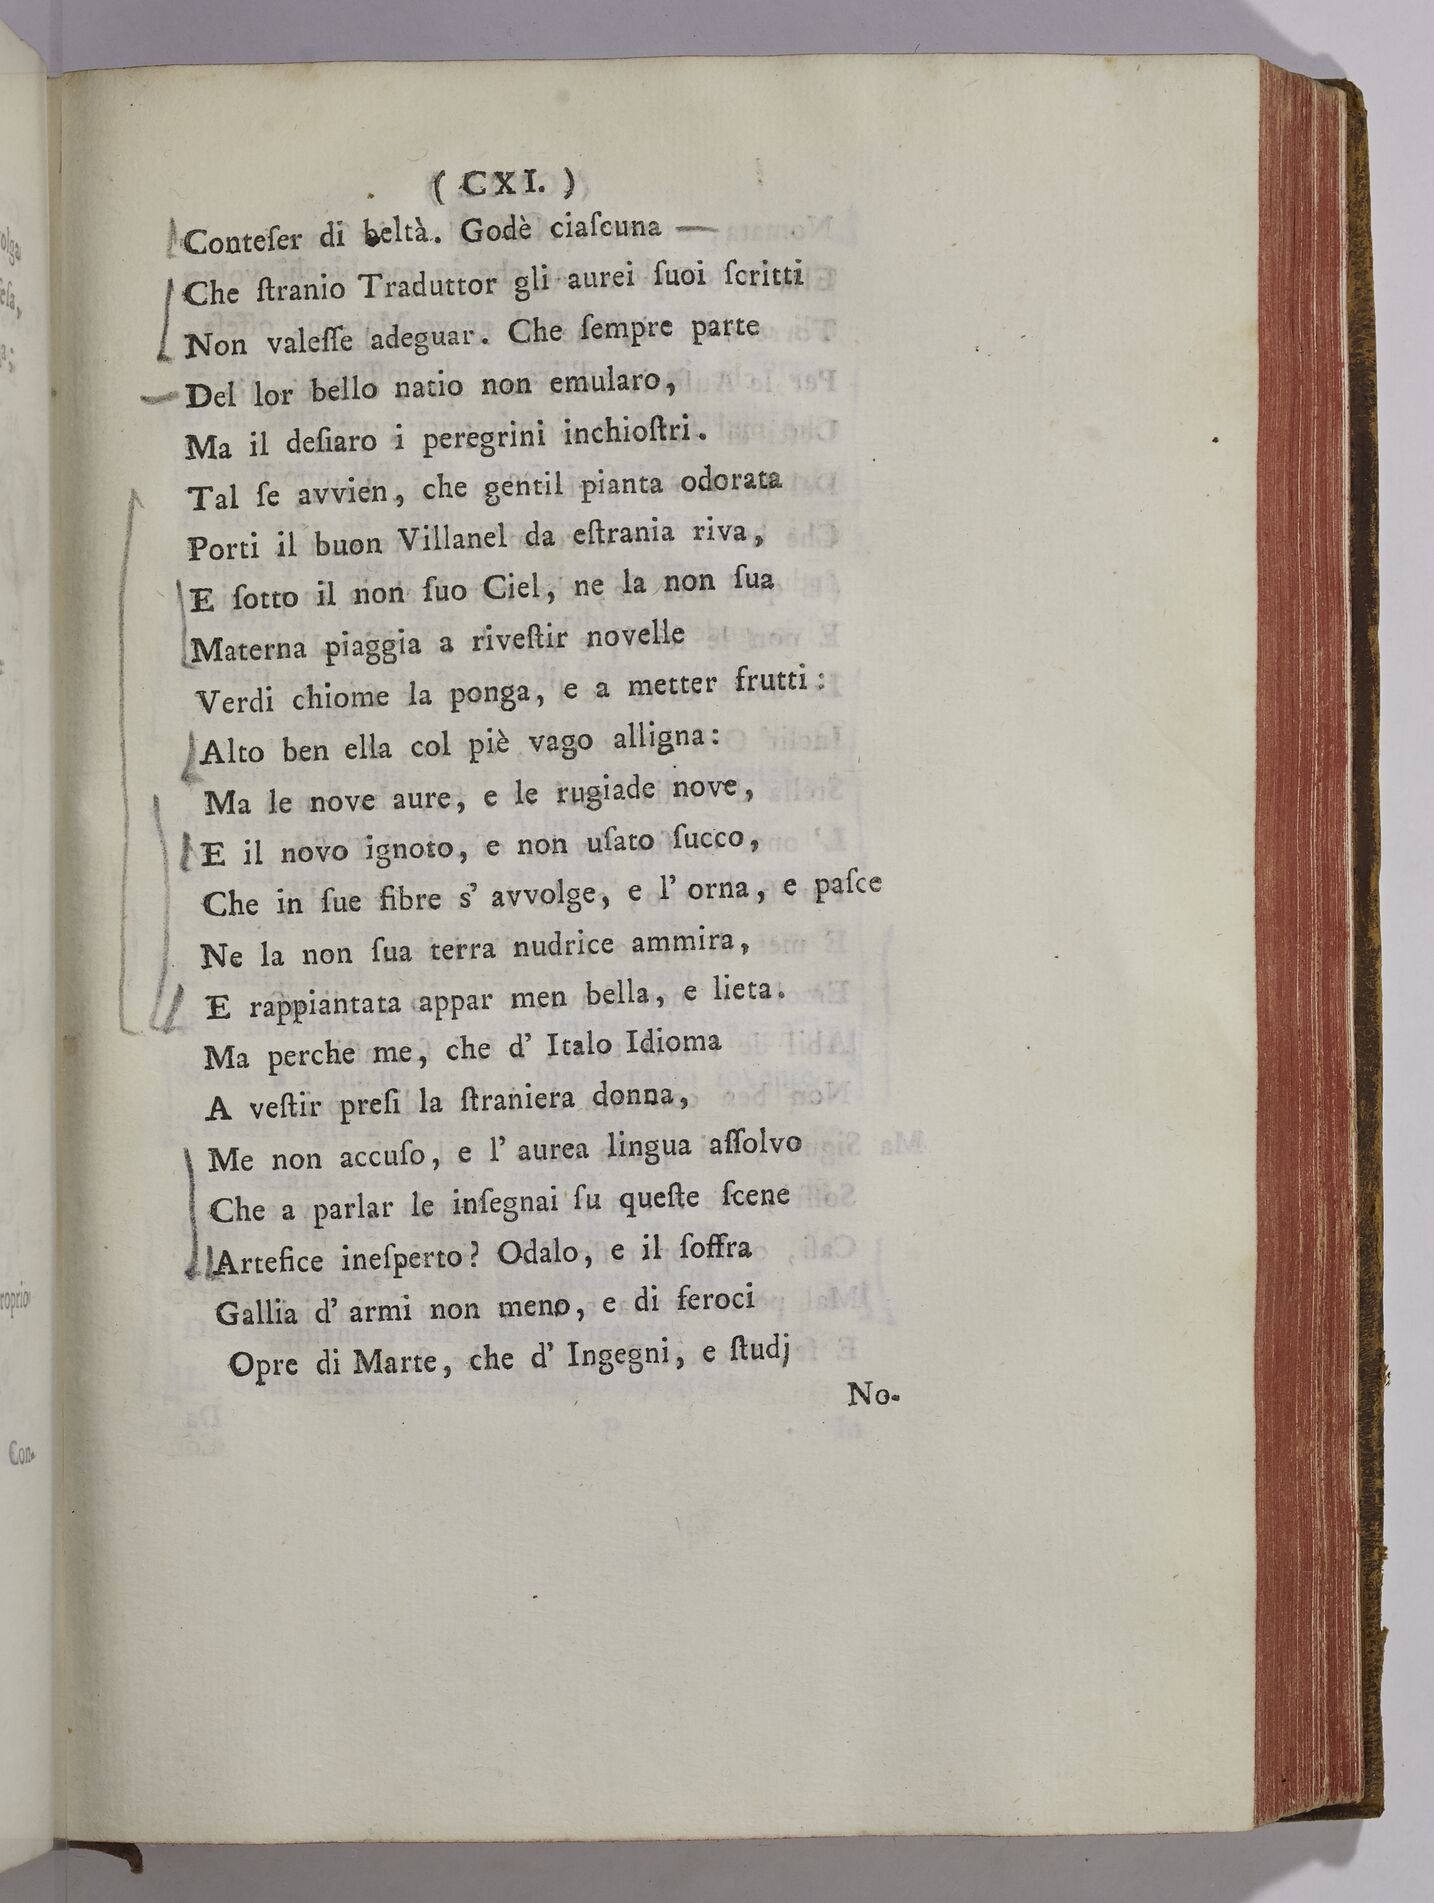 ( CXI. )
Conteſer di beltà. Godè ciaſcuna —
Che ſtranio Traduttor gli aurei ſuoi ſcritti
Non valeſſe adeguar. Che ſempre parte
Del lor bello natio non emularo,
Ma il deſiaro i peregrini inchioſtri.
Tal ſe avvien, che gentil pianta odorata
Porti il buon Villanel da eſtrania riva,
E ſotto il non ſuo Ciel, ne la non ſua
Materna piaggia a riveſtir novelle
Verdi chiome la ponga, e a metter frutti:
Alto ben ella col piè vago alligna:
Ma le nove aure, e le rugiade nove,
E il novo ignoto, e non uſato ſucco,
Che in ſue fibre s' avvolge, e l' orna, e paſce
Ne la non ſua terra nudrice ammira,
E rappiantata appar men bella, e lieta.
Ma perche me, che d' Italo Idioma
A veſtir preſi la ſtraniera donna,
Me non accuſo, e l' aurea lingua aſſolvo
Che a parlar le inſegnai ſu queſte ſcene
Artefice ineſperto? Odalo, e il ſoffra
Gallia d' armi non meno, e di feroci
Opre di Marte, che d' Ingegni, e ſtudj
No-